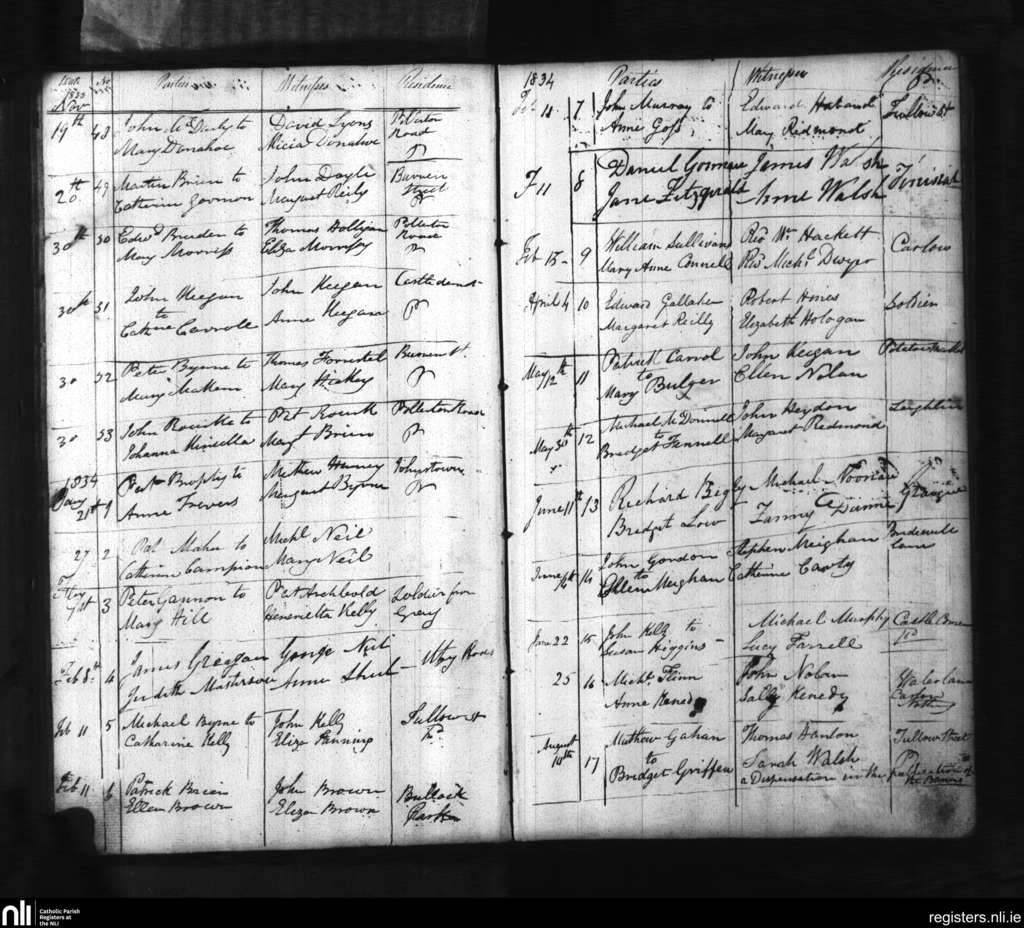 1833 No Parties Witnesses Residence
Nov
19th 48 John McDarby to David Lyons Pollerton
Mary Donahoe Alicia Donahoe Road
20th 49 Martin Brien to John Doyle Burren
Catherin Gormon Margaret Reily Street
30th 50 Edwd Breeder to Thomas Holligan Pollerton
Mary Morress Eliza Morrissy Road
30th 51 John Keegan John Keegan Castledermot
to
Cathrine Carroll Anne Keegan
30 52 Peter Byrne to Thomas Forrestel Burren St
Mary Makem Mary Hickey
30 53 John Rourke to Pat Rourk Pollerton Road
Johanna Kinsella Margt Brien
1834
Jany 21st 1 Pat Brophy to Mathew Johnstown
Anne Frevers Margaret Byrne
27 2 Pat Maher to Michl Neil
Catherine Campion Mary Neil
1st 3 Peter Gannon to Pat Archbold Soldier from
Mary Hill Henerietta Kelly
Feb 8th 4 James Greegan George Neil
Judith Masterson Anne
Feb 11 5 Michael Byrne to John Kelly Tullow St
Catharine Kelly Eliza Finning
Feb 11 6 Patrick Brien John Brown Bullock
Ellen Brown Eliza Brown Park
1834 Parties Witnesses Residence
Feb 11 7 John Murray to Edward Tullow St
Anne Goss Mary Redmond
F 11 8 Daniel Gorman James Walsh
Jane Fitzgerald Anne Walsh
Feb 15 9 William Sullivan Revd Mr Hackett Carlow
Mary Anne Connell Revd Michl Dwyer
April 4 10 Edward Gallaher Robert Hines Soldier
Margaret Reilly Elizabeth Hologan
May 12th 11 Patrick Carrol John Keegan
to
Mary Bulger Ellen Nolan
May 30th 12 Michael McDonnell John Heydon Leighlin
to
Bridget Fennell Margaret Redmond
June 11th 13 Richard Begly Michael Noonan Graigue
Bridget Low Fanny Dunne
June 16th 14 John Gordon Stephen Meighan
to
Ellen Meighan Catherine Carty Lane
June 22 15 John Kelly to Michael Murphy Castle Comer
Susan Higgins Lucy Farrell
25 16 Michl Flinn John Nolan
Anne Kenedy Sally Kenedy
August 10th 17 Mathew Gahan Thomas Hanlon Tullow Street
to
Bridget Griffen Sarah Walsh
a Dispensation in the publication of
the Banns
nli Catholic Parish
Registers at
the NLI
registers.nli.ie